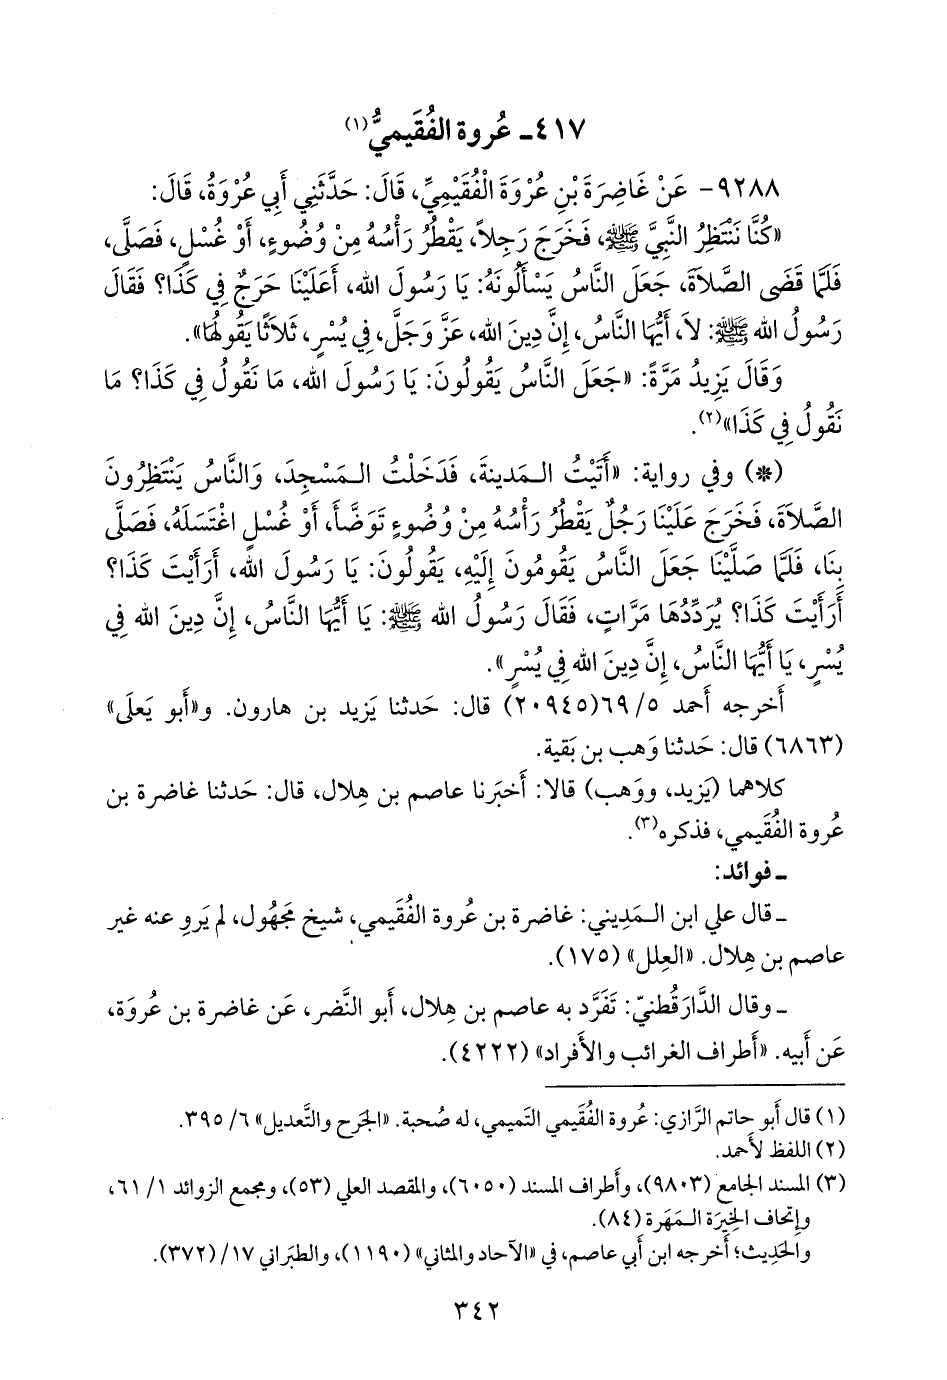 ٤١٧ـ عُروة الفُقَيميُّ(١)
٩٢٨٨- عَنْ غَاضِرَةَ بْنِ عُرْوَةَ الْفُقَيْمِيِّ، قَالَ: حَدَّثَنِي أَبِي عُرْوَةُ، قَالَ:
«كُنَّا نَنْتَظِرُ النَّبِيَّ ﷺ، فَخَرَجَ رَجِلاً، يَقْطُرُ رَأْسُهُ مِنْ وُضُوءٍ، أَوْ غُسْلٍ، فَصَلَّى،
فَلَمَّا قَضَى الصَّلاَةَ، جَعَلَ النَّاسُ يَسْأَلُونَهُ: يَا رَسُولَ الله، أَعَلَيْنَا حَرَجٌ فِي كَذَا؟ فَقَالَ
رَسُولُ الله ﷺ: لاَ، أَيُّهَا النَّاسُ، إِنَّ دِينَ الله، عَزَّ وَجَلَّ، فِي يُسْرٍ، ثَلاَثًا يَقُولُهَا».
وَقَالَ يَزِيدُ مَرَّةً: «جَعَلَ النَّاسُ يَقُولُونَ: يَا رَسُولَ الله، مَا نَقُولُ فِي كَذَا؟ مَا
نَقُولُ فِي كَذَا»(٢).
(*) وفي رواية: «أَتَيْتُ الـمَدِينَةَ، فَدَخَلْتُ الـمَسْجِدَ، وَالنَّاسُ يَنْتَظِرُونَ
الصَّلاَةَ، فَخَرَجَ عَلَيْنَا رَجُلٌ يَقْطُرُ رَأْسُهُ مِنْ وُضُوءٍ تَوَضَّأَ، أَوْ غُسْلٍ اغْتَسَلَهُ، فَصَلَّى
بِنَا، فَلَمَّا صَلَّيْنَا جَعَلَ النَّاسُ يَقُومُونَ إِلَيْهِ، يَقُولُونَ: يَا رَسُولَ الله، أَرَأَيْتَ كَذَا؟
أَرَأَيْتَ كَذَا؟ يُرَدِّدُهَا مَرَّاتٍ، فَقَالَ رَسُولُ الله ﷺ: يَا أَيُّهَا النَّاسُ، إِنَّ دِينَ الله فِي
يُسْرٍ، يَا أَيُّهَا النَّاسُ، إِنَّ دِينَ الله فِي يُسْرٍ».
أَخرجه أَحمد ٥/ ٦٩(٢٠٩٤٥) قال: حَدثنا يَزيد بن هارون. و«أَبو يَعلَى»
(٦٨٦٣) قال: حَدثنا وَهب بن بَقية.
كلاهما (يَزيد، ووَهب) قالا: أَخبَرنا عاصم بن هِلال، قال: حَدثنا غاضرة بن
عُروة الفُقَيمي، فذكره(٣).
ـ فوائد:
ـ قال علي ابن الـمَديني: غاضرة بن عُروة الفُقَيمي، شيخ مَجهُول، لم يَروِ عنه غير
عاصم بن هِلال. «العِلل» (١٧٥).
ـ وقال الدَّارَقُطنيّ: تَفَرَّد به عاصم بن هِلال، أَبو النَّضر، عَن غاضرة بن عُروَة،
عَن أَبيه. «أَطراف الغرائب والأَفراد» (٤٢٢٢).
(١) قال أَبو حاتم الرَّازي: عُروة الفُقَيمي التَّميمي، له صُحبة. «الجَرح والتَّعديل» ٦/ ٣٩٥.
(٢) اللفظ لأَحمد.
(٣) المسند الجامع (٩٨٠٣)، وأَطراف المسند (٦٠٥٠)، والمقصد العلي (٥٣)، ومجمع الزوائد ١/ ٦١،
وإِتحاف الخِيرَة الـمَهَرة (٨٤).
والحَدِيث؛ أَخرجه ابن أَبي عاصم، في «الآحاد والمثاني» (١١٩٠)، والطبَراني ١٧/ (٣٧٢).
٣٤٢